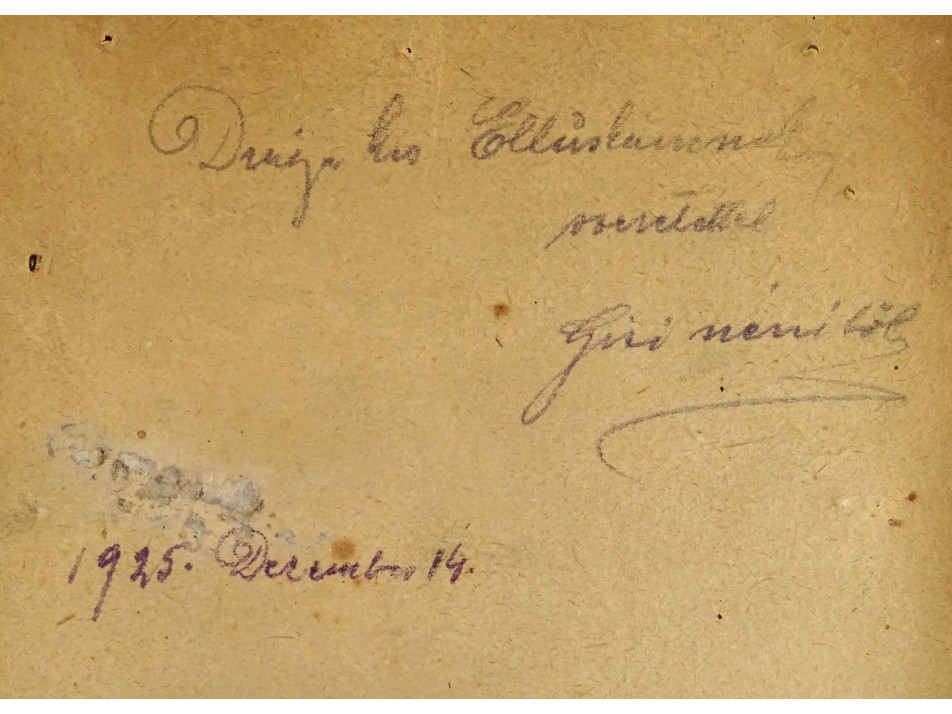 Drága kis Elluskámnak
szeretettel
Gizi nénitől
1925. Dezember 14.